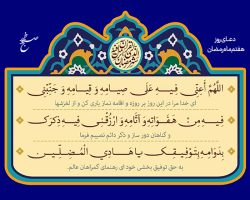 دعای روز
هفتم ماه رمضان
اللَّهُمَّ أَعِنِّي فِيهِ عَلَى صِيَامِهِ وَ قِيَامِهِ وَ جَنِّبْنِي
ای خدا مرا در این روز بر روزه و اقامه نماز یاری کن و از لغزشها
فِيهِ مِنْ هَفَوَاتِهِ وَ آثَامِهِ وَ ارْزُقْنِي فِيهِ ذِكْرَكَ
و گناهان دور ساز و ذکر دائم نصیبم فرما
بِدَوَامِهِ بِتَوْفِيقِكَ يَا هَادِيَ الْمُضِلِّينَ
به حق توفیق بخشی خود ای رهنمای گمراهان عالم.